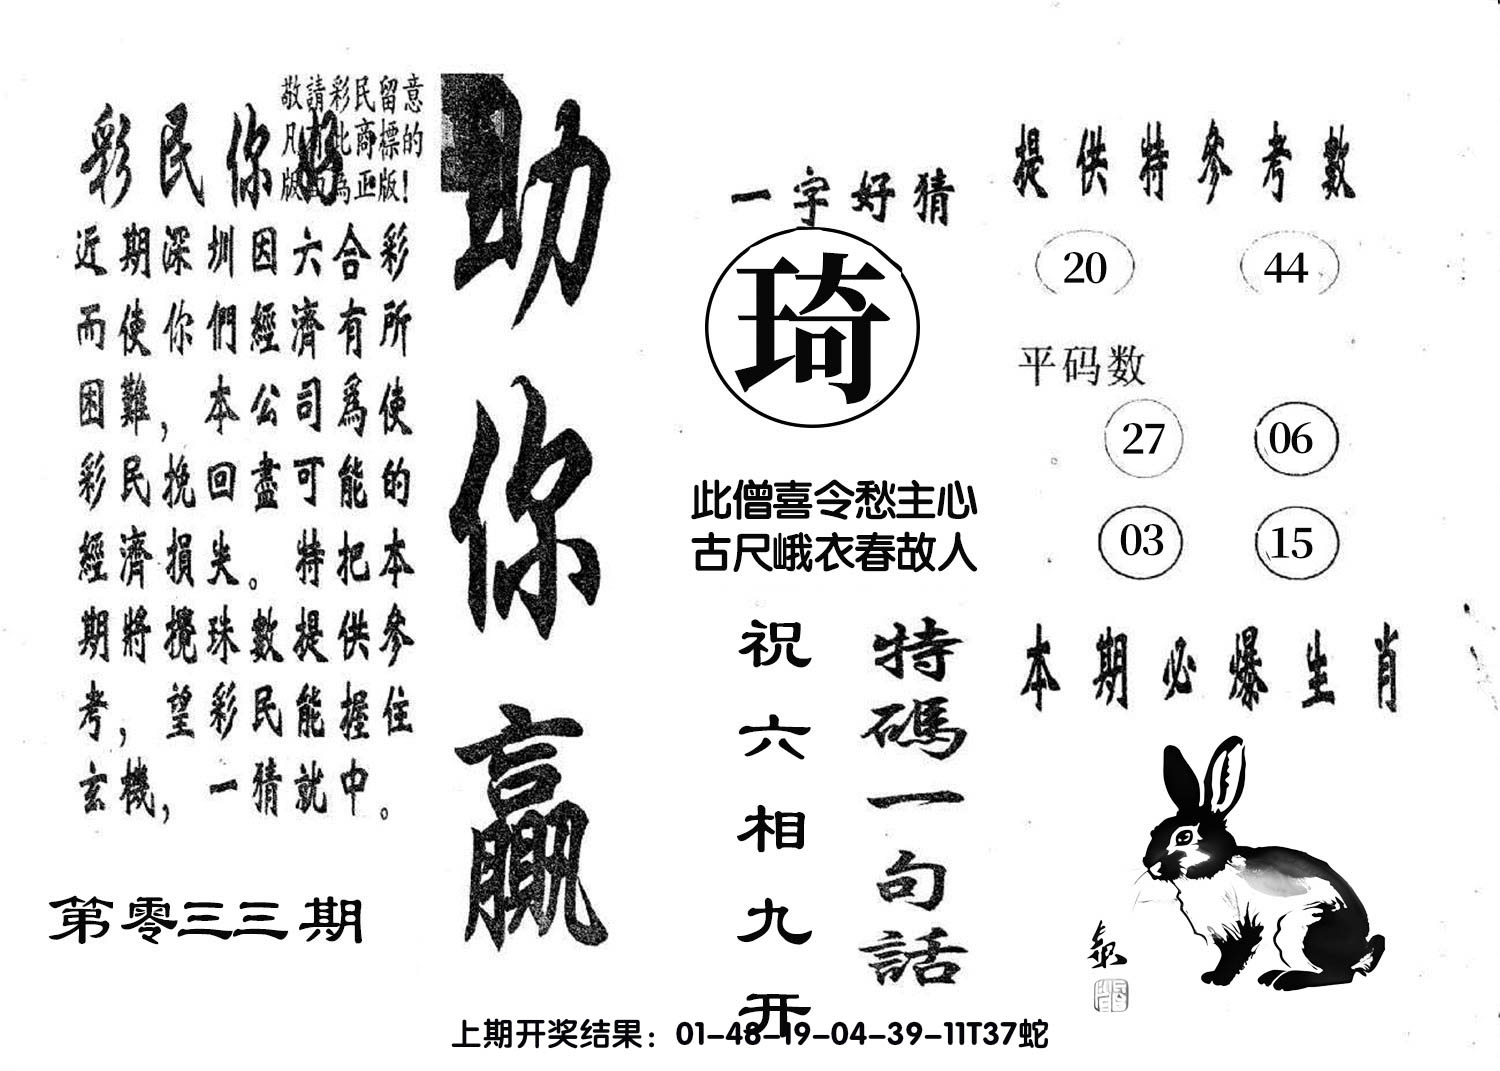 敬請彩民留意
凡有此商標的
版面為正版！
彩民你好
近期深圳因六合彩
而使你們經濟有所
困難，本公司爲使
彩民挽回盡可能的
經濟損失。特把本
期將攪珠數提供參
考，望彩民能握住
玄機，一猜就中。
第零三三期
助你贏
一字好猜
琦
此僧喜令愁主心
古尺峨衣春故人
特碼一句話
祝六相九开
提供特參考數
20 44
平码数
27 06
03 15
本期必爆生肖
上期开奖结果：01-48-19-04-39-11T37蛇